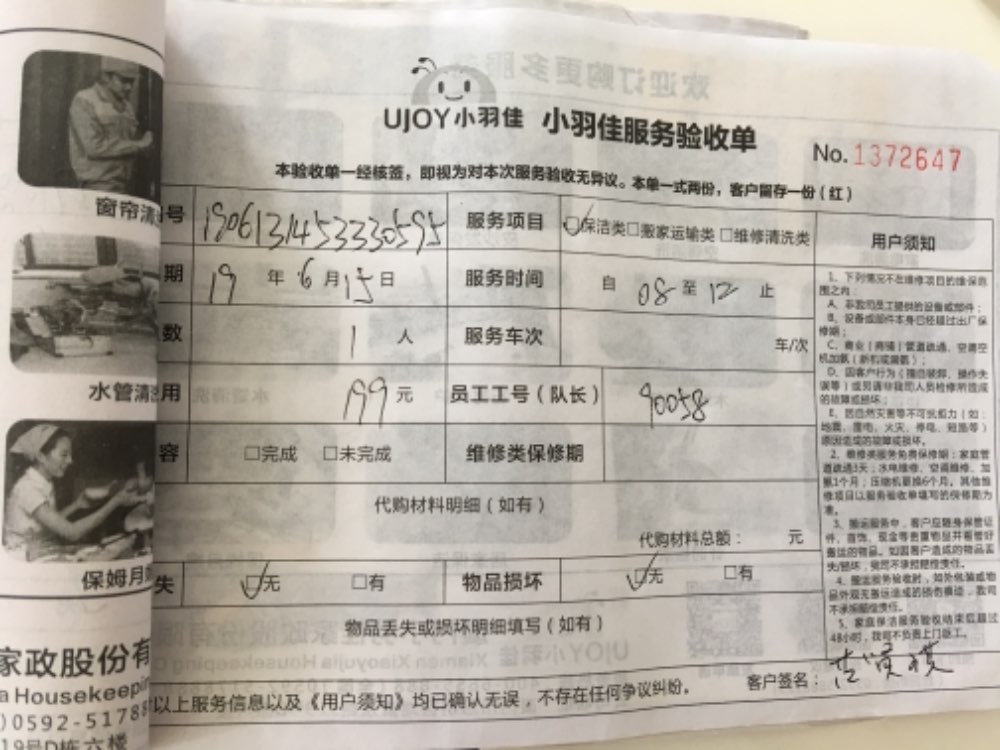 UJOY小羽佳 小羽佳服务验收单
No.1372647
本验收单一经核签，即视为对本次服务验收无异议。本单一式两份，客户留存一份（红）
窗帘清
号 1906131453330595 服务项目 ☑保洁类□搬家运输类□维修清洗类
期 19年6月15日 服务时间 自08至12止
数 1人 服务车次 车/次
水管清
用 199元 员工工号（队长） 90058
容 □完成 □未完成 维修类保修期
代购材料明细（如有）
代购材料总额： 元
保姆月
失 ☑无 □有 物品损坏 ☑无 □有
物品丢失或损坏明细填写（如有）
以上服务信息以及《用户须知》均已确认无误，不存在任何争议纠纷。
客户签名：
用户须知
1、下列情况不在维修项目的维保范围之内：
A、非我司员工提供的设备或部件；
B、设备或部件本身已经超过出厂保修期；
C、商业（商铺）管道疏通、空调空机加氨（新机或漏氨）；
D、因客户行为（擅自破卸、操作失误等）或另请非我司人员检修所造成的故障或损坏；
E、因自然灾害等不可抗拒力（如：地震、雷电、火灾、停电、短路等）原因造成的故障或损坏。
2、维修类服务免费保修期：家庭管道疏通3天；水电维修、空调维修、加氨1个月；压缩机更换6个月。其他维修项目以服务验收单填写的保修期为准。
3、搬运服务中，客户应随身保管证件、首饰、现金等贵重物品并看管好搬运的物品。如因客户造成的物品丢失/损坏，我司不承担赔偿责任。
4、搬运服务验收时，如外包装或物品外观无搬运造成的损伤痕迹，我司不承担赔偿责任。
5、家庭保洁服务验收结束后超过48小时，我司不负责上门返工。
家政股份有
a Housekeepin
)0592-5178
19号D栋六楼